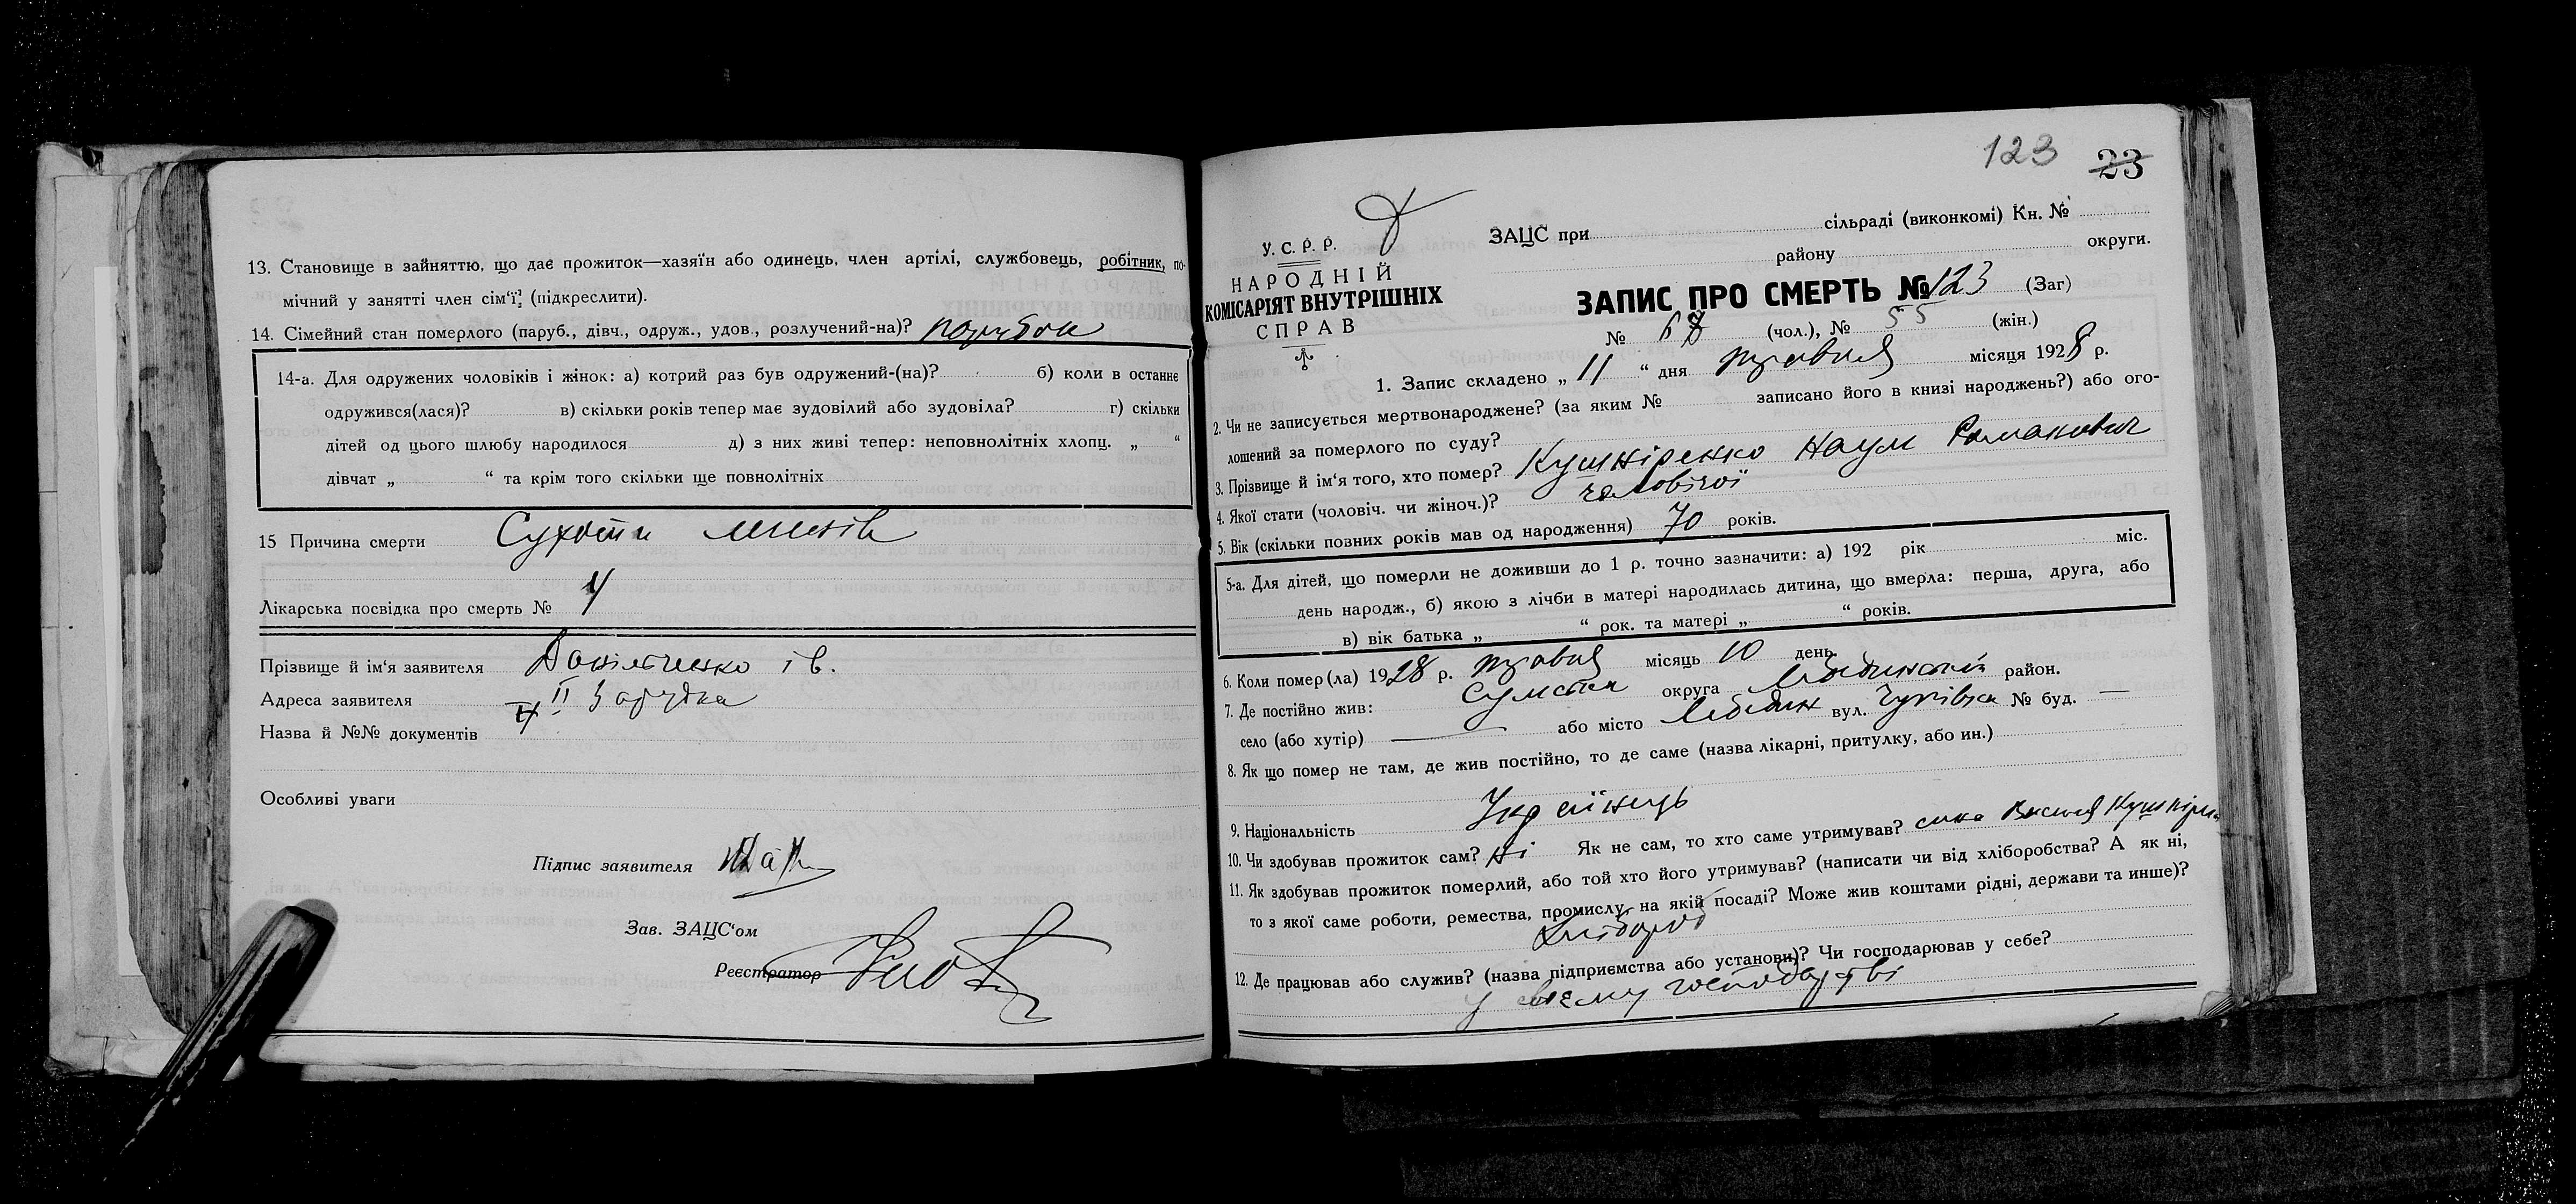 13. Становище в зайняттю, що дає прожиток—хазяїн або одинець, член артілі, службовець, робітник, по-
мічний у занятті член сім'ї, (підкреслити).
14. Сімейний стан померлого (паруб., дівч., одруж., удов., розлучений-на)? парубок
14-а. Для одружених чоловіків і жінок: а) котрий раз був одружений-(на)? б) коли в останнє
одружився(лася)? в) скільки років тепер має зудовілий або зудовіла? г) скільки
дітей од цього шлюбу народилося д) з них живі тепер: неповнолітніх хлопц. „ “
дівчат „ “ та крім того скільки ще повнолітніх
15 Причина смерти Сухоти легенів
Лікарська посвідка про смерть № 4
Прізвище й ім'я заявителя Данільченко Ів.
Адреса заявителя II Зарудка
Назва й №№ документів
Особливі уваги
Підпис заявителя
Зав. ЗАЦС'ом
Реєстратор
123 23
У. С. Р. Р.
НАРОДНІЙ
КОМІСАРІЯТ ВНУТРІШНІХ
СПРАВ
ЗАЦС при сільраді (виконкомі) Кн. №
району округи.
ЗАПИС ПРО СМЕРТЬ № 123 (Заг)
№ 68 (чол.), № 55 (жін.)
1. Запис складено „ 11 “ дня травня місяця 1928 р.
2. Чи не записується мертвонароджене? (за яким № записано його в книзі народжень?) або ого-
лошений за померлого по суду?
3. Прізвище й ім'я того, хто помер? Кушніренко Наум Романович
4. Якої стати (чоловіч. чи жіноч.)? чоловічої
5. Вік (скільки повних років мав од народження) 70 років.
5-а. Для дітей, що померли не доживши до 1 р. точно зазначити: а) 192 рік міс.
день народж., б) якою з лічби в матері народилась дитина, що вмерла: перша, друга, або
в) вік батька „ “ рок. та матері „ “ років.
6. Коли помер(ла) 1928 р. травня місяць 10 день
7. Де постійно жив: Сумська округа Лебединський район.
село (або хутір) — або місто Лебедин вул. № буд. —
8. Як що помер не там, де жив постійно, то де саме (назва лікарні, притулку, або ин.)
9. Національність Українець
10. Чи здобував прожиток сам? Ні Як не сам, то хто саме утримував? сина Василя Кушнірен
11. Як здобував прожиток померлий, або той хто його утримував? (написати чи від хліборобства? А як ні,
то з якої саме роботи, ремества, промислу, на якій посаді? Може жив коштами рідні, держави та инше)?
Хлібороб
12. Де працював або служив? (назва підприємства або установи)? Чи господарював у себе?
у своєму господарстві